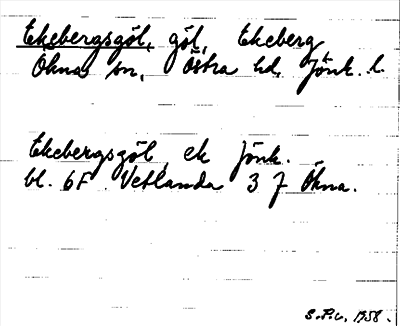 Ekebergsgöl, göl, Ekeberg
Ökna sn, Östra hd, Jönk. l.
Ekebergsgöl ek Jönk.
bl. 6F Vetlanda 3 f Ökna.
S.P.v. 1958.